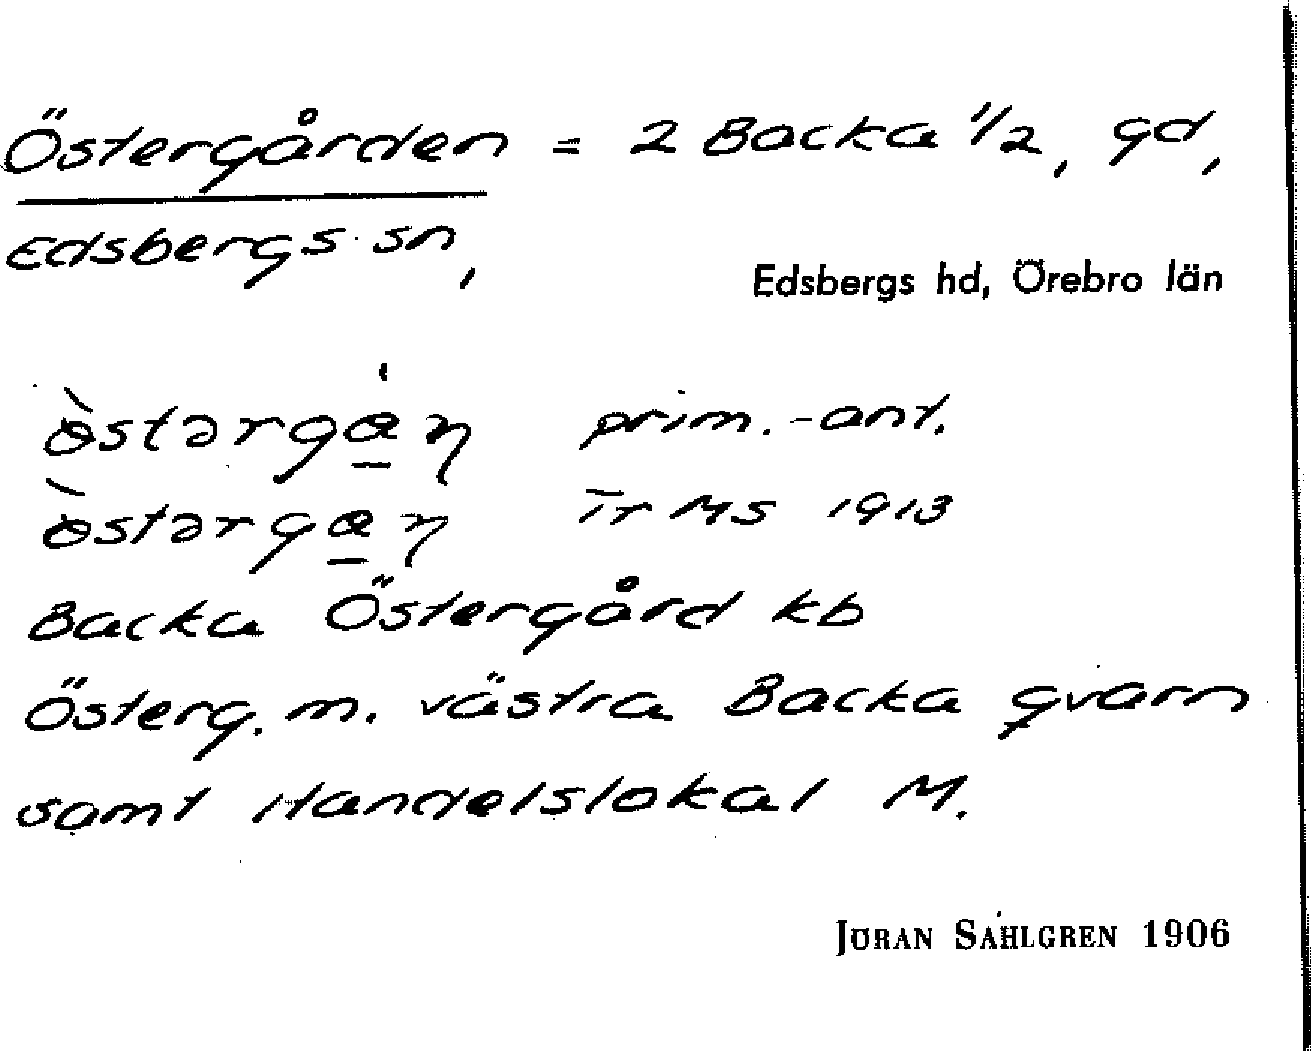 Östergården = 2 Backa 1/2, gd,
Edsbergs sn,
Edsbergs hd, Örebro län
ö̀stərgå̀ṇ prim.-ant.
ö̀stərgåṇ īr MS 1913
Backa Östergård kb
Österg. m. västra Backa qvarn
samt Handelslokal M.
JÖRAN SAHLGREN 1906